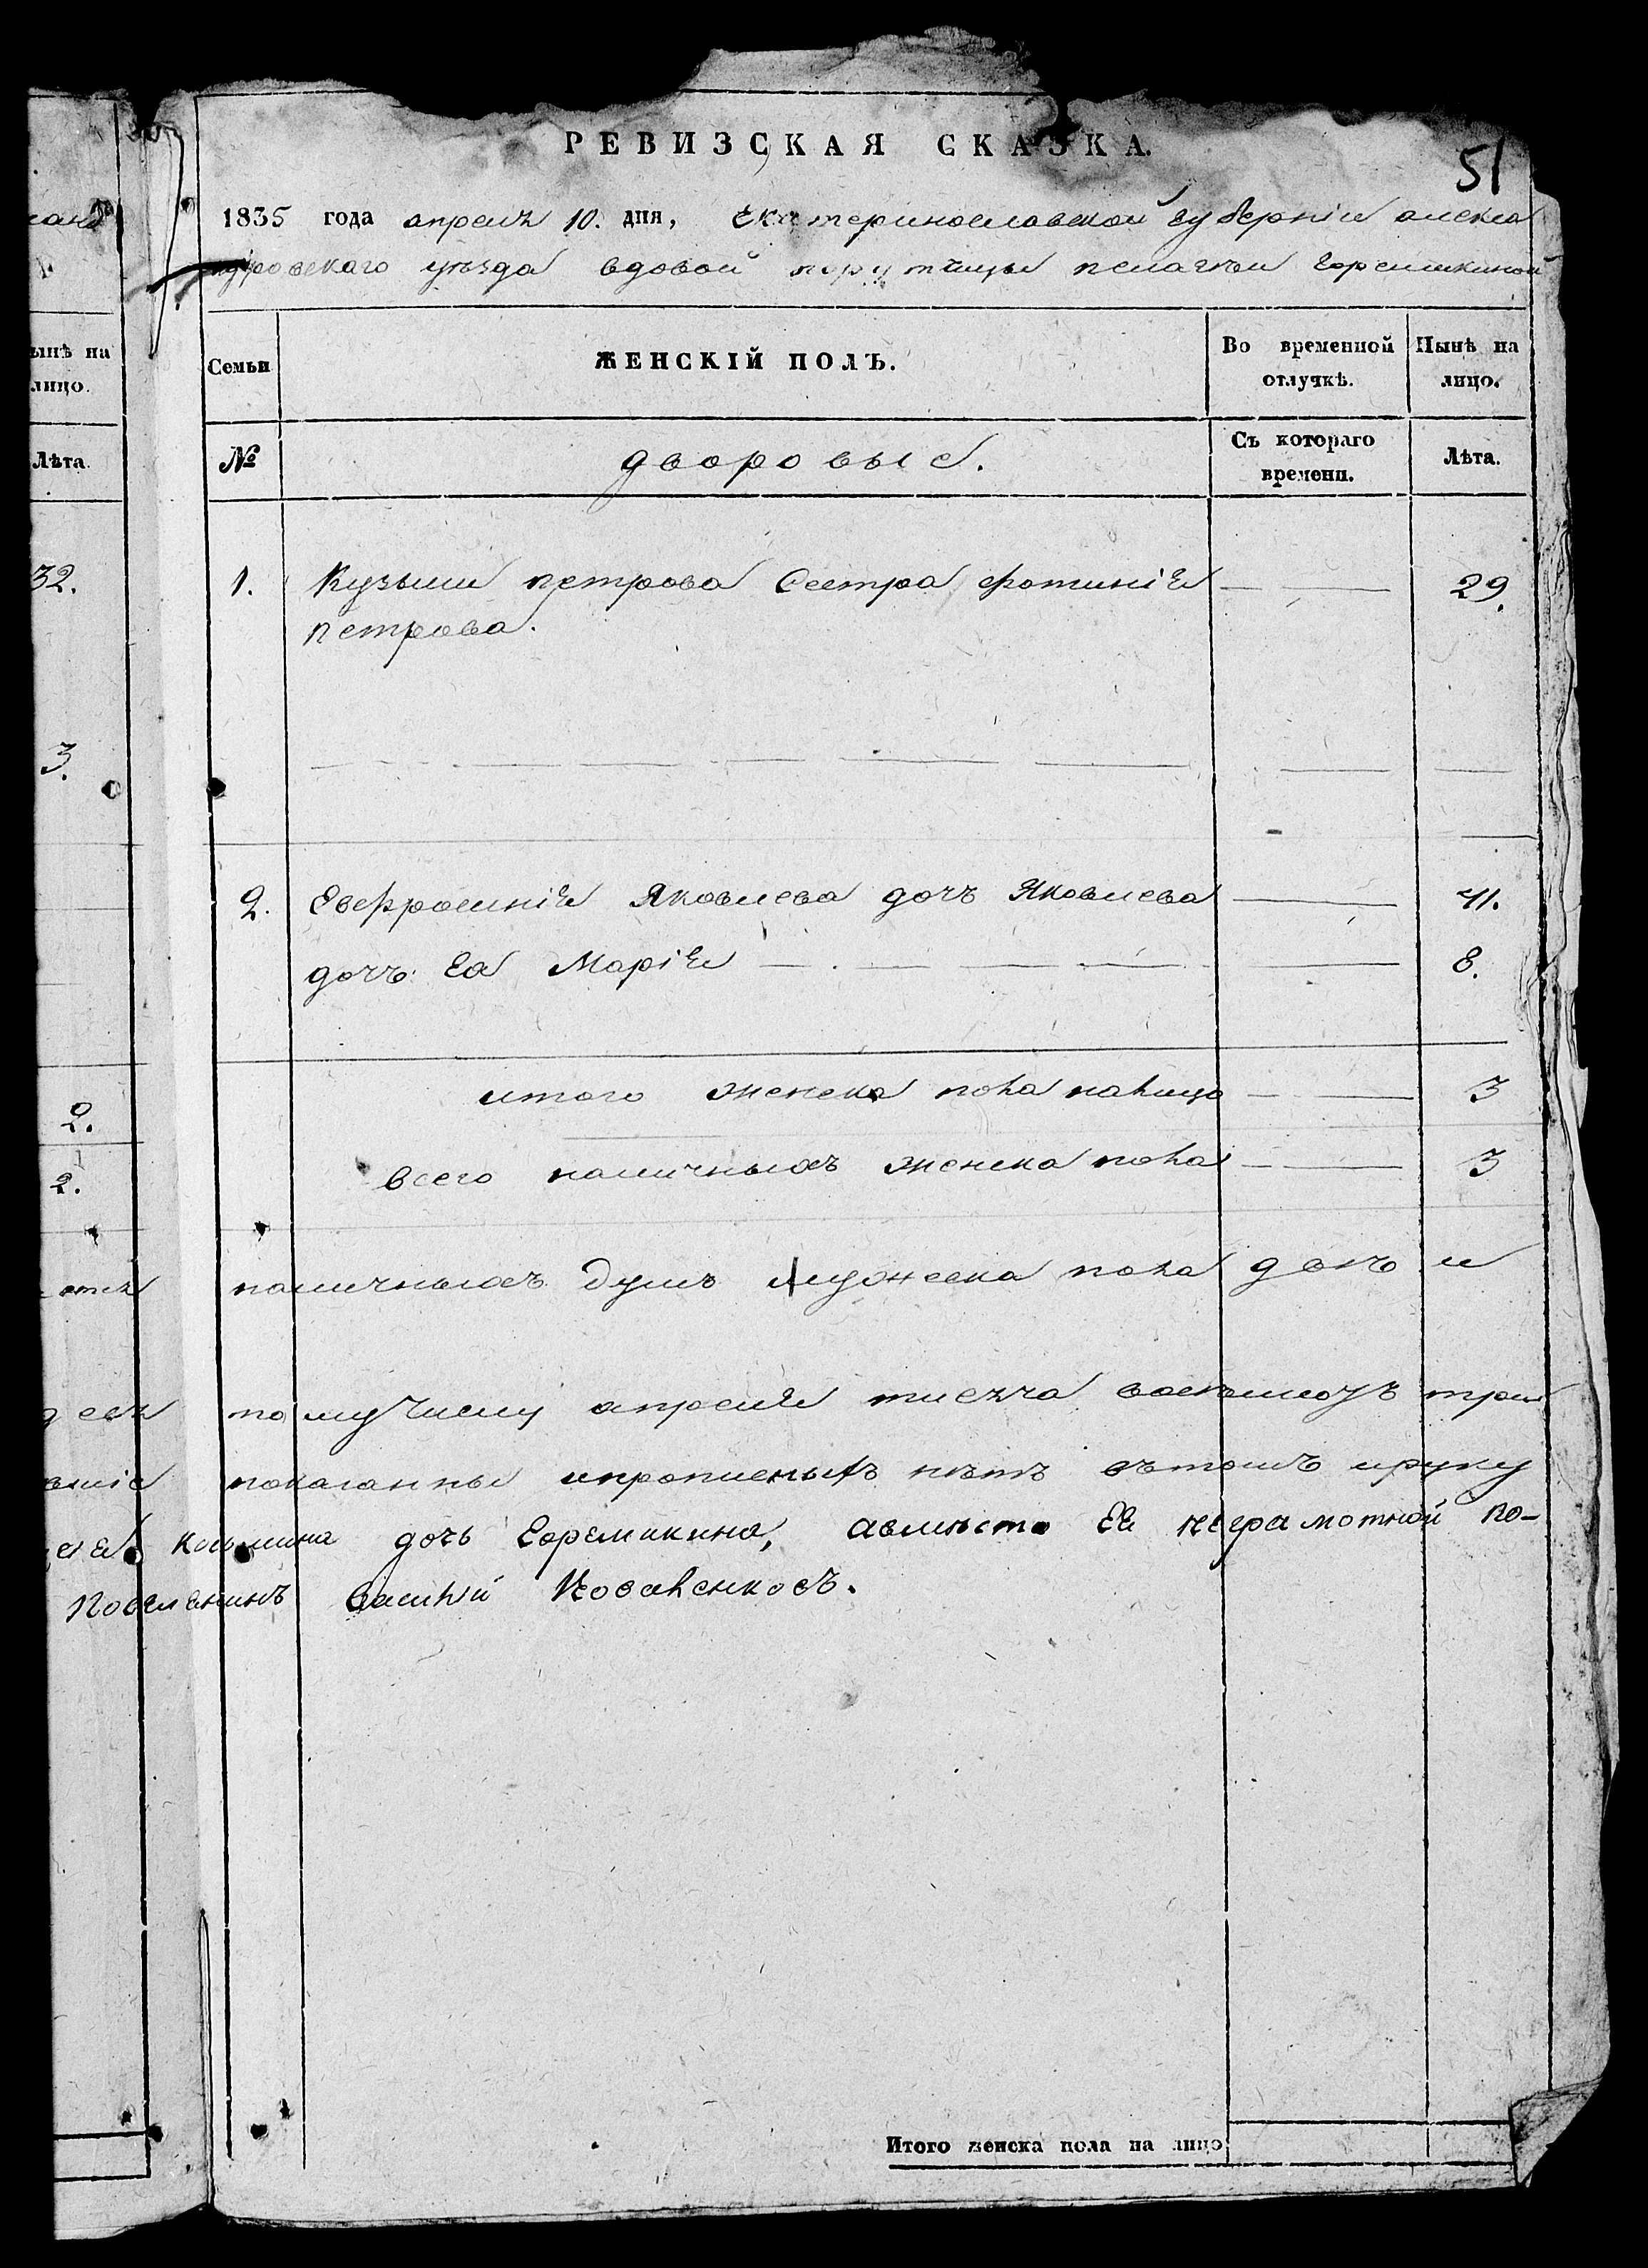 РЕВИЗСКАЯ СКАЗКА.
51
1835 года апреля 10. дня, Екатеринославской губерніи алекса
ндровскаго уѣзда вдовой порутчицы пелагѣи Еоремыкиной
Семьи
ЖЕНСКІЙ ПОЛЪ.
Во временной отлучкѣ.
Нынѣ на лицо.
№
дворовыє.
Съ котораго времени.
Лѣта.
1. Кузьмы петрова Сестра фотинія 29.
петрова.
2. Евфросинія Яковлева дочь Яковлева 41.
дочь Еа Марія 8.
итого женска пола налицо 3
всего наличныхъ женска пола 3
наличныхъ душъ мужеска пола двѣ и
тому числу апреля тисяча восемсотъ три
показанны ипрописныхъ нѣтъ вътомъ ируку
Козьмина дочь Еоремыкина, авместо Ее неграмотной по-
Поселянинъ Василій Коваленковъ.
Итого женска пола на лицо
ынѣ на
лицо.
Лѣта.
32.
3.
2.
2.